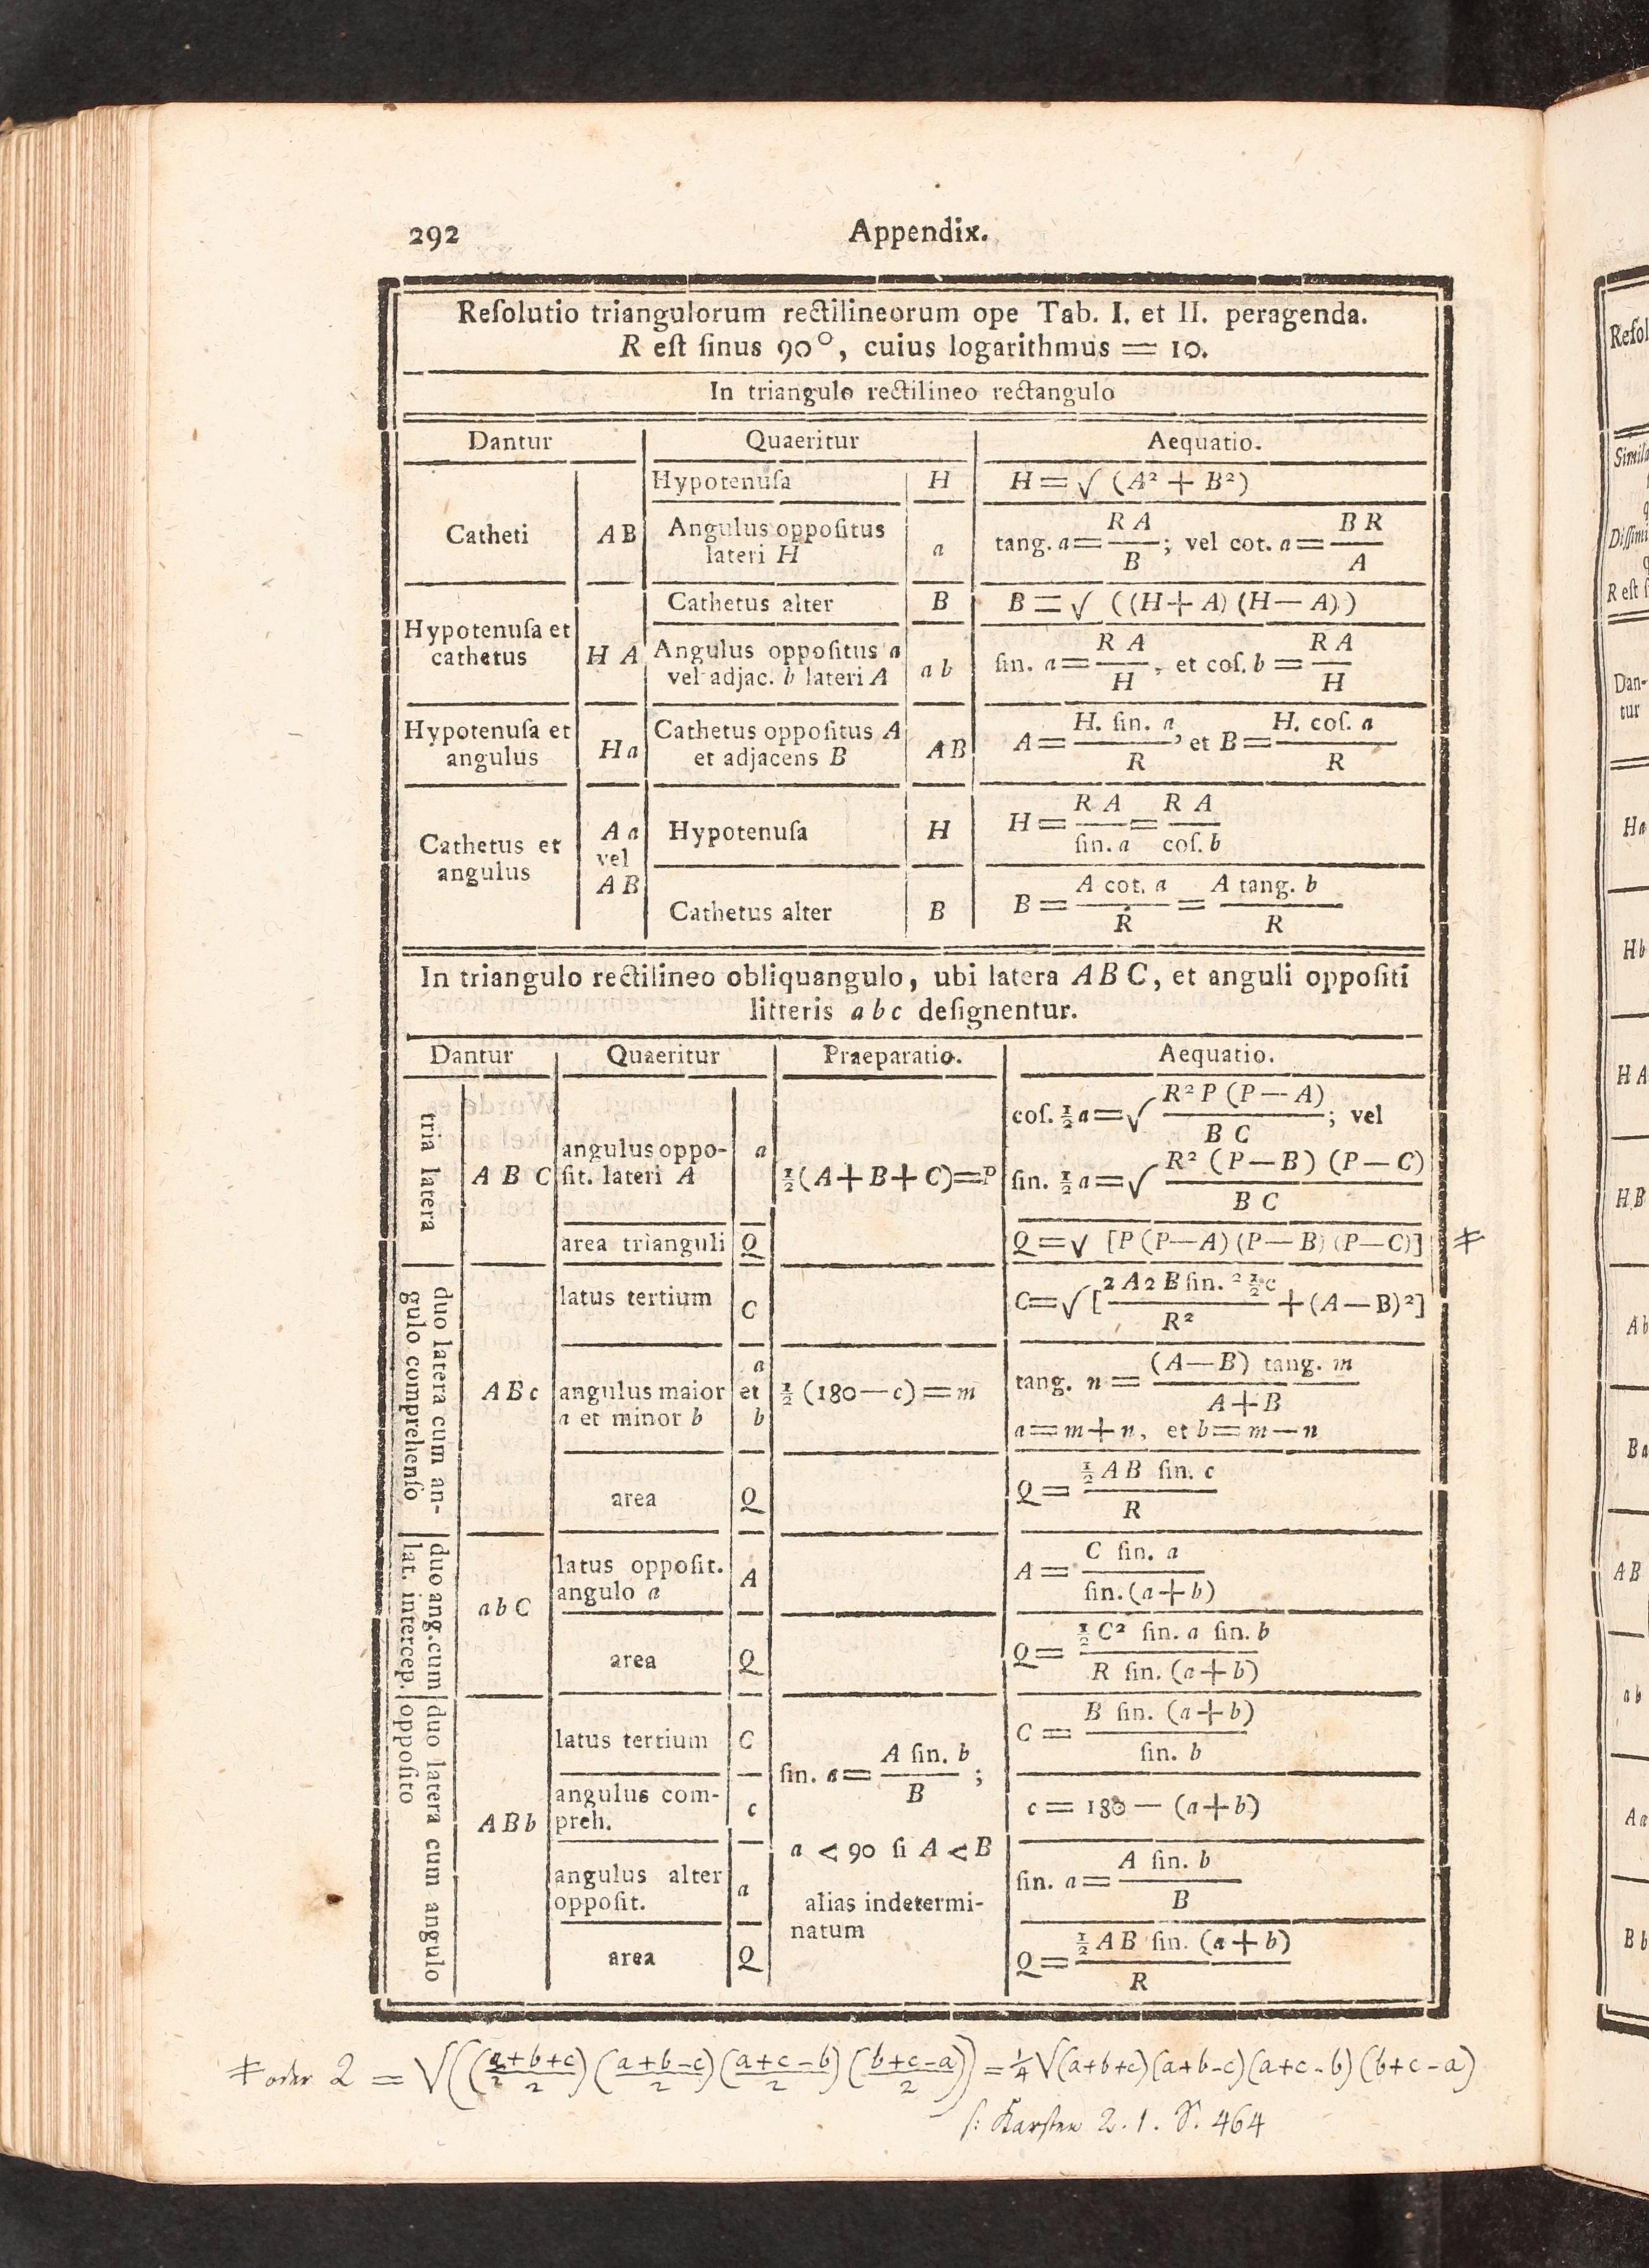 292 Appendix.
Reſolutio triangulorum rectilineorum ope Tab. I. et II. peragenda.
R eſt ſinus 90°, cuius logarithmus = 10.
In triangulo rectilineo rectangulo
Dantur Quaeritur Aequatio.
Catheti AB Hypotenuſa H H = √ (A² + B²)
Angulus oppoſitus lateri H a tang. a = R A / B ; vel cot. a = B R / A
Hypotenuſa et cathetus H A Cathetus alter B B = √ ((H + A) (H — A))
Angulus oppoſitus a vel adjac. b lateri A a b ſin. a = R A / H , et coſ. b = R A / H
Hypotenuſa et angulus H a Cathetus oppoſitus A et adjacens B AB A = H. ſin. a / R , et B = H. coſ. a / R
Cathetus et angulus A a vel A B Hypotenuſa H H = R A / ſin. a = R A / coſ. b
Cathetus alter B B = A cot. a / R = A tang. b / R
In triangulo rectilineo obliquangulo, ubi latera A B C, et anguli oppoſiti
litteris a b c deſignentur.
Dantur Quaeritur Praeparatio. Aequatio.
tria latera A B C angulus oppo-
ſit. lateri A a ½ (A + B + C) = P coſ. ½ a = √ R² P (P — A) / B C ; vel
ſin. ½ a = √ R² (P — B) (P — C) / B C
area trianguli Q Q = √ [P (P — A) (P — B) (P — C)] ⧧
duo latera cum an-
gulo comprehenſo A B c latus tertium C C = √ [2 A 2 B ſin. ² ½ c / R² + (A — B)²]
angulus maior
a et minor b a et b ½ (180 — c) = m tang. n = (A — B) tang. m / A + B
a = m + n, et b = m — n
area Q Q = ½ A B ſin. c / R
duo ang. cum
lat. intercep. a b C latus oppoſit.
angulo a A A = C ſin. a / ſin. (a + b)
area Q Q = ½ C² ſin. a ſin. b / R ſin. (a + b)
duo latera cum angulo
oppoſito A B b latus tertium C ſin. a = A ſin. b / B ; C = B ſin. (a + b) / ſin. b
angulus com-
preh. c a < 90 ſi A < B c = 180 — (a + b)
angulus alter
oppoſit. a alias indetermi-
natum ſin. a = A ſin. b / B
area Q Q = ½ A B ſin. (a + b) / R
⧧ oder 2 = √((a+b+c / 2) (a+b-c / 2) (a+c-b / 2) (b+c-a / 2)) = ¼ √(a+b+c)(a+b-c)(a+c-b)(b+c-a)
ſ: Karsten 2. 1. S. 464
Reſol
Simila
Diſſimi
R eſt ſ
Dan-
tur
Ha
Hb
H A
H B
A b
B a
A B
a b
A a
B b